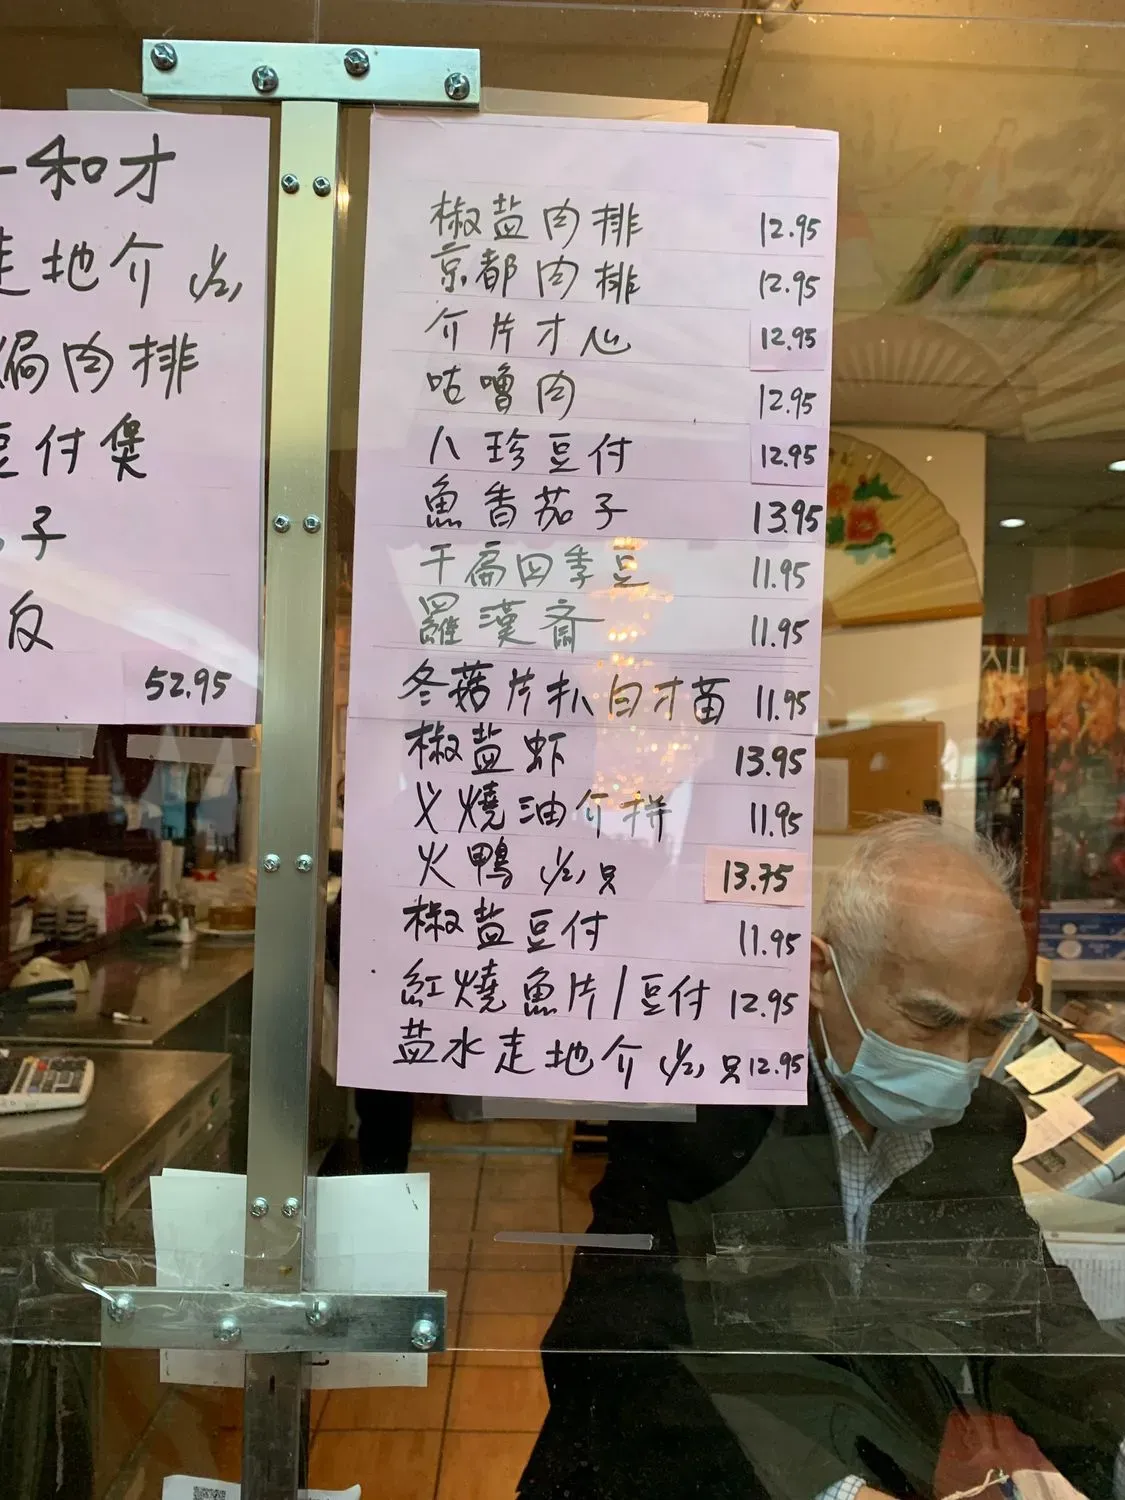 和才
走地介 1/2
焗肉排
豆付煲
子
反
52.95
椒盐肉排 12.95
京都肉排 12.95
介片才心 12.95
咕嚕肉 12.95
八珍豆付 12.95
魚香茄子 13.95
干扁四季豆 11.95
羅漢斋 11.95
冬菇片扒白才苗 11.95
椒盐虾 13.95
义燒油介拼 11.95
火鴨 1/2只 13.75
椒盐豆付 11.95
紅燒魚片/豆付 12.95
盐水走地介 1/2只 12.95